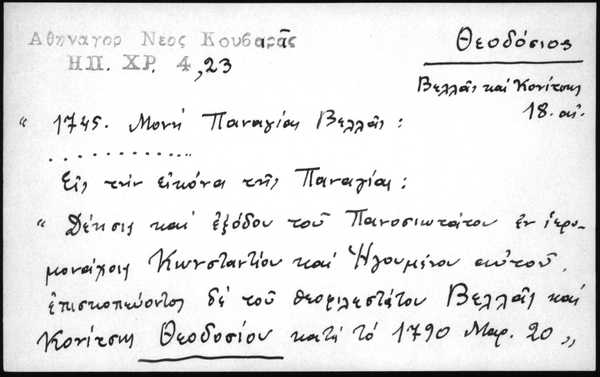 Αθηναγορ Νεος Κουβαρᾶς
ΗΠ. ΧΡ. 4, 23
Θεοδόσιος
Βελλᾶς καί Κονίτσης
18. αἰ.
" 1745. Μονή Παναγίας Βελλᾶς :
..............
Εἰς τήν εἰκόνα τῆς Παναγίας :
" Δέησις καί ἐξόδου τοῦ Πανοσιωτάτου ἐν ἱερο-
μονάχοις Κωνσταντίου καί Ἡγουμένου αὐτοῦ,
ἐπισκοπεύοντος δέ τοῦ θεοφιλεστάτου Βελλᾶς καί
Κονίτσης Θεοδοσίου κατά τό 1790 Μαρ. 20 „